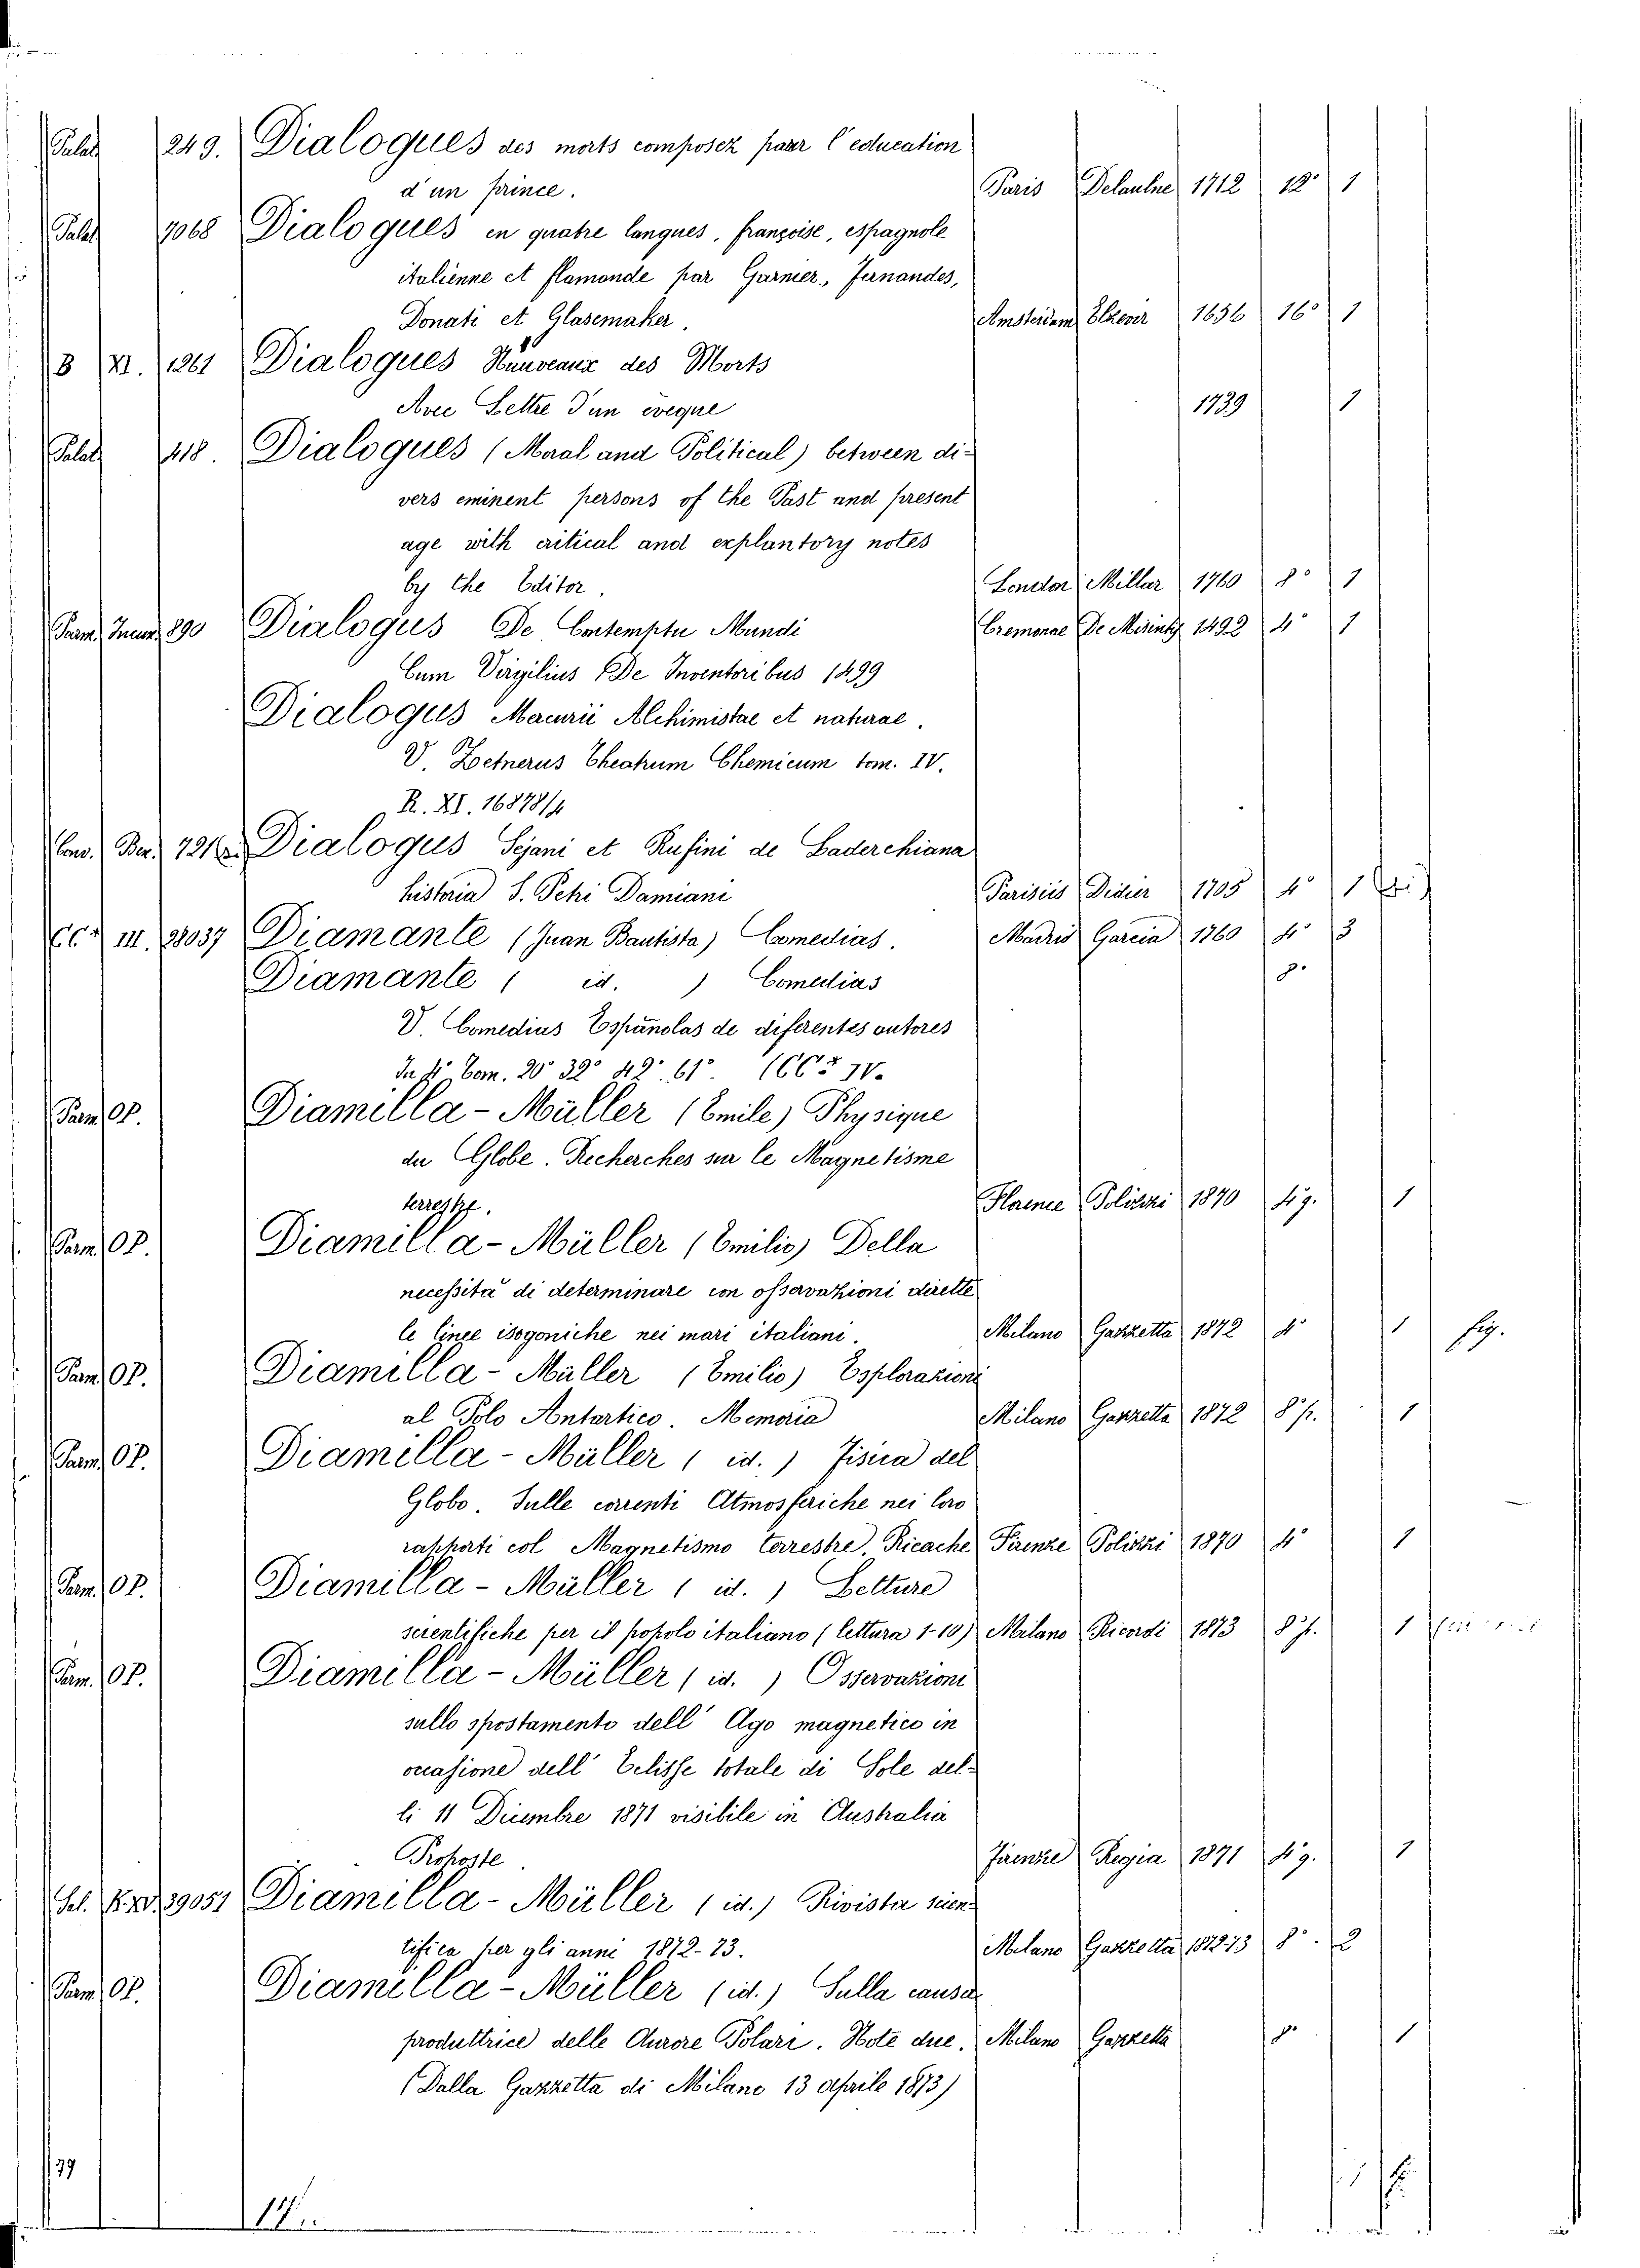 Palat 249. Dialogues des morts composez pour l'education
d'un prince. Paris Delaulne 1712 12° 1
Palat 7068 Dialogues en quatre langues, françoise, espagnole
italienne et flamonde par Garnier, Fernandes,
Donati et Glasemaker. Amsterdam Elzevir 1656 16° 1
B XI. 1261 Dialogues Nouveaux des Morts
Avec Lettre d'un eveque 1739 1
Palat 418. Dialogues (Moral and Political) between di-
vers eminent persons of the Past and present
age with critical and explantory notes
by the Editor. London Millar 1760 8° 1
Parm. Incun. 890 Dialogus De Contemptu Mundi Cremonae De Misintis 1492 4° 1
Cum Virgilius De Inventoribus 1499
Dialogus Mercurii Alchimistae et naturae.
V. Zetnerus Theatrum Chemicum tom. IV.
R. XI. 16878/4
Cons. Ber. 721 Dialogus Sejani et Rufini de Laderchiana
historia S. Petri Damiani Parisiis Didier 1705 4° 1
CC* III. 28037 Diamante (Juan Bautista) Comedias. Madrid Garcia 1760 4° 3
Diamante ( id. ) Comedias 8°
V. Comedias Espanolas de diferentes autores
In 4° Tom. 20° 32° 49° 61° (CC* IV.
Parm. OP. Diamilla-Müller (Emile) Physique
du Globe. Recherches sur le Magnetisme
terrestre. Florence Polizzi 1870 4° g. 1
Parm. OP. Diamilla-Müller (Emilio) Della
necessità di determinare con osservazioni dirette
le linee isogoniche nei mari italiani. Milano Gazzetta 1872 4° 1 fig.
Parm. OP. Diamilla-Müller (Emilio) Esplorazioni
al Polo Antartico. Memoria Milano Gazzetta 1872 8° p. 1
Parm. OP. Diamilla-Müller ( id. ) Fisica del
Globo. Sulle correnti Atmosferiche nei loro
rapporti col Magnetismo terrestre. Ricache Firenze Polizzi 1870 4° 1
Parm. OP. Diamilla-Müller ( id. ) Letture
scientifiche per il popolo italiano (lettura 1-10) Milano Ricordi 1873 8° p. 1
Parm. OP. Diamilla-Müller ( id. ) Osservazioni
sullo spostamento dell' Ago magnetico in
occasione dell' Eclisse totale di Sole del-
li 11 Dicembre 1871 visibile in Australia
Proposte. Firenze Regia 1871 4° g. 1
Sal. K. XV. 39051 Diamilla-Müller ( id. ) Rivista scien-
tifica per gli anni 1872-73. Milano Gazzetta 1872-73 8°. 2
Parm. OP. Diamilla-Müller (id.) Sulla causa
produttrice delle Aurore Polari. Note due. Milano Gazzetta 8° 1
(Dalla Gazzetta di Milano 13 Aprile 1873)
17.